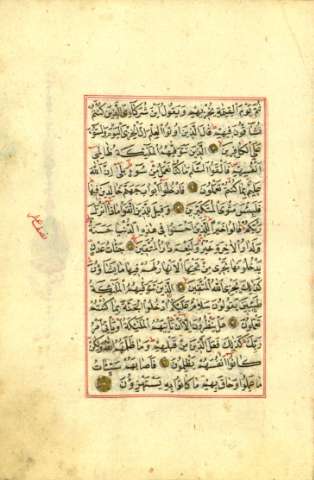 ثُمَّ يَوْمَ الْقِيٰمَةِ يُخْزِيهِمْ وَيَقُولُ اَيْنَ شُرَكَاءِيَ الَّذِينَ كُنْتُمْ
تُشَاقُّونَ فِيهِمْ قَالَ الَّذِينَ اُوتُوا الْعِلْمَ اِنَّ الْخِزْيَ الْيَوْمَ وَالسُّوءَ
عَلَى الْكَافِرِينَ الَّذِينَ تَتَوَفّٰيهُمُ الْمَلٰئِكَةُ ظَالِمِي
اَنْفُسِهِمْ فَاَلْقَوُا السَّلَمَ مَا كُنَّا نَعْمَلُ مِنْ سُوءٍ بَلٰى اِنَّ اللّٰهَ
عَلِيمٌ بِمَا كُنْتُمْ تَعْمَلُونَ فَادْخُلُوا اَبْوَابَ جَهَنَّمَ خَالِدِينَ فِيهَا
فَلَبِئْسَ مَثْوَى الْمُتَكَبِّرِينَ وَقِيلَ لِلَّذِينَ اتَّقَوْا مَاذَا اَنْزَلَ
رَبُّكُمْ قَالُوا خَيْرًا لِلَّذِينَ اَحْسَنُوا فِي هٰذِهِ الدُّنْيَا حَسَنَةٌ
وَلَدَارُ الْاٰخِرَةِ خَيْرٌ وَلَنِعْمَ دَارُ الْمُتَّقِينَ جَنَّاتُ عَدْنٍ
يَدْخُلُونَهَا تَجْرِي مِنْ تَحْتِهَا الْاَنْهَارُ لَهُمْ فِيهَا مَا يَشَاؤُنَ
كَذٰلِكَ يَجْزِي اللّٰهُ الْمُتَّقِينَ الَّذِينَ تَتَوَفّٰيهُمُ الْمَلٰئِكَةُ
طَيِّبِينَ يَقُولُونَ سَلَامٌ عَلَيْكُمُ ادْخُلُوا الْجَنَّةَ بِمَا كُنْتُمْ
تَعْمَلُونَ هَلْ يَنْظُرُونَ اِلَّا اَنْ تَأْتِيَهُمُ الْمَلٰئِكَةُ اَوْ يَأْتِيَ اَمْرُ
رَبِّكَ كَذٰلِكَ فَعَلَ الَّذِينَ مِنْ قَبْلِهِمْ وَمَا ظَلَمَهُمُ اللّٰهُ وَلٰكِنْ
كَانُوا اَنْفُسَهُمْ يَظْلِمُونَ فَاَصَابَهُمْ سَيِّئَاتُ
مَا عَمِلُوا وَحَاقَ بِهِمْ مَا كَانُوا بِهِ يَسْتَهْزِؤُنَ